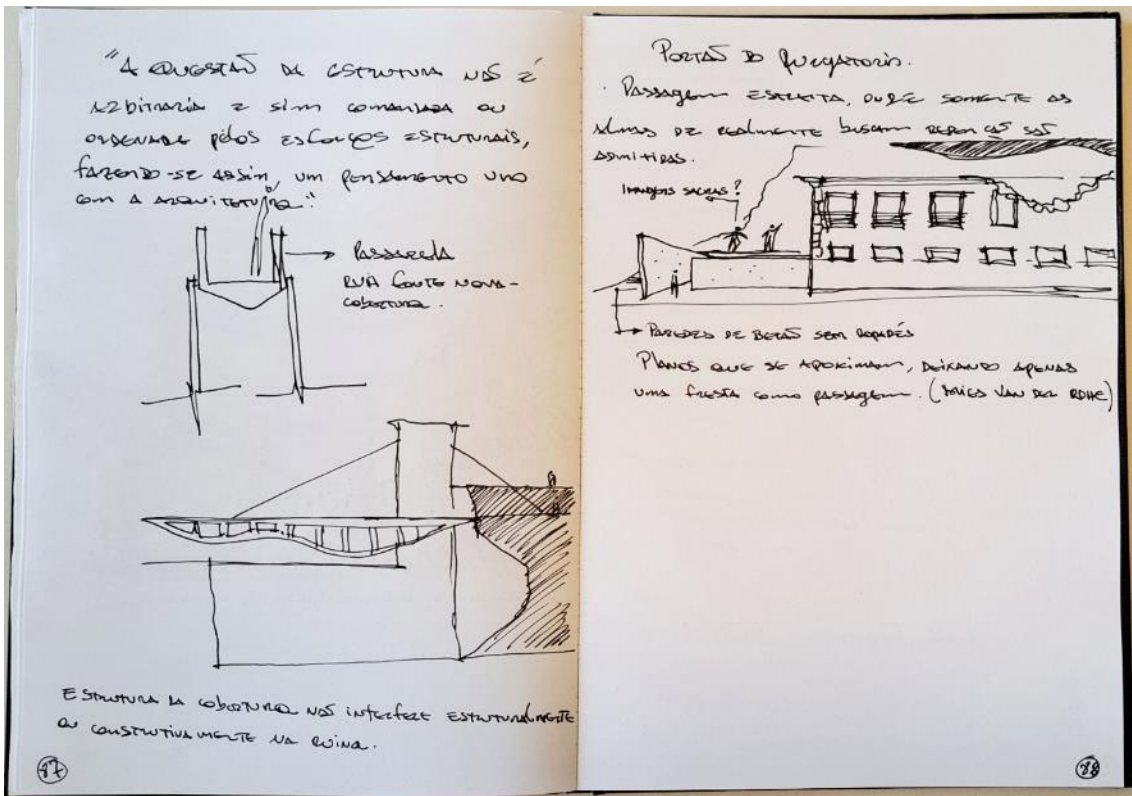 "A QUESTAÕ DA ESTRUTURA NÃO É
ARBITRARIA E SIM COMANDADA OU
ORDENADA PELOS ESFORÇOS ESTRUTURAIS,
FAZENDO-SE ASSIM, UM PENSAMENTO UNO
COM A ARQUITETURA."
PASSARELA
RUA FONTE NOVA-
COBERTURA.
ESTRUTURA DA COBERTURA NÃO INTERFERE ESTRUTURALMENTE
OU CONSTRUTIVAMENTE NA RUINA.
87
PORTAÕ DO PURGATORIO.
. PASSAGEM ESTREITA, ONDE SOMENTE AS
ALMAS QUE REALMENTE BUSCAM SAÕ
ADMITIDAS.
IMAGENS SACRAS?
PAREDES DE BETAÕ SEM RODAPÉS
PLANOS QUE SE APOXIMAM, DEIXANDO APENAS
UMA FRESTA COMO PASSAGEM. (MIES VAN DER ROHE)
88